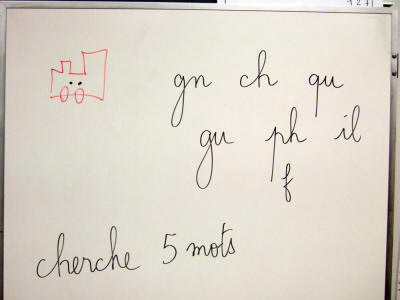 gn ch qu
gu ph il
f
cherche 5 mots